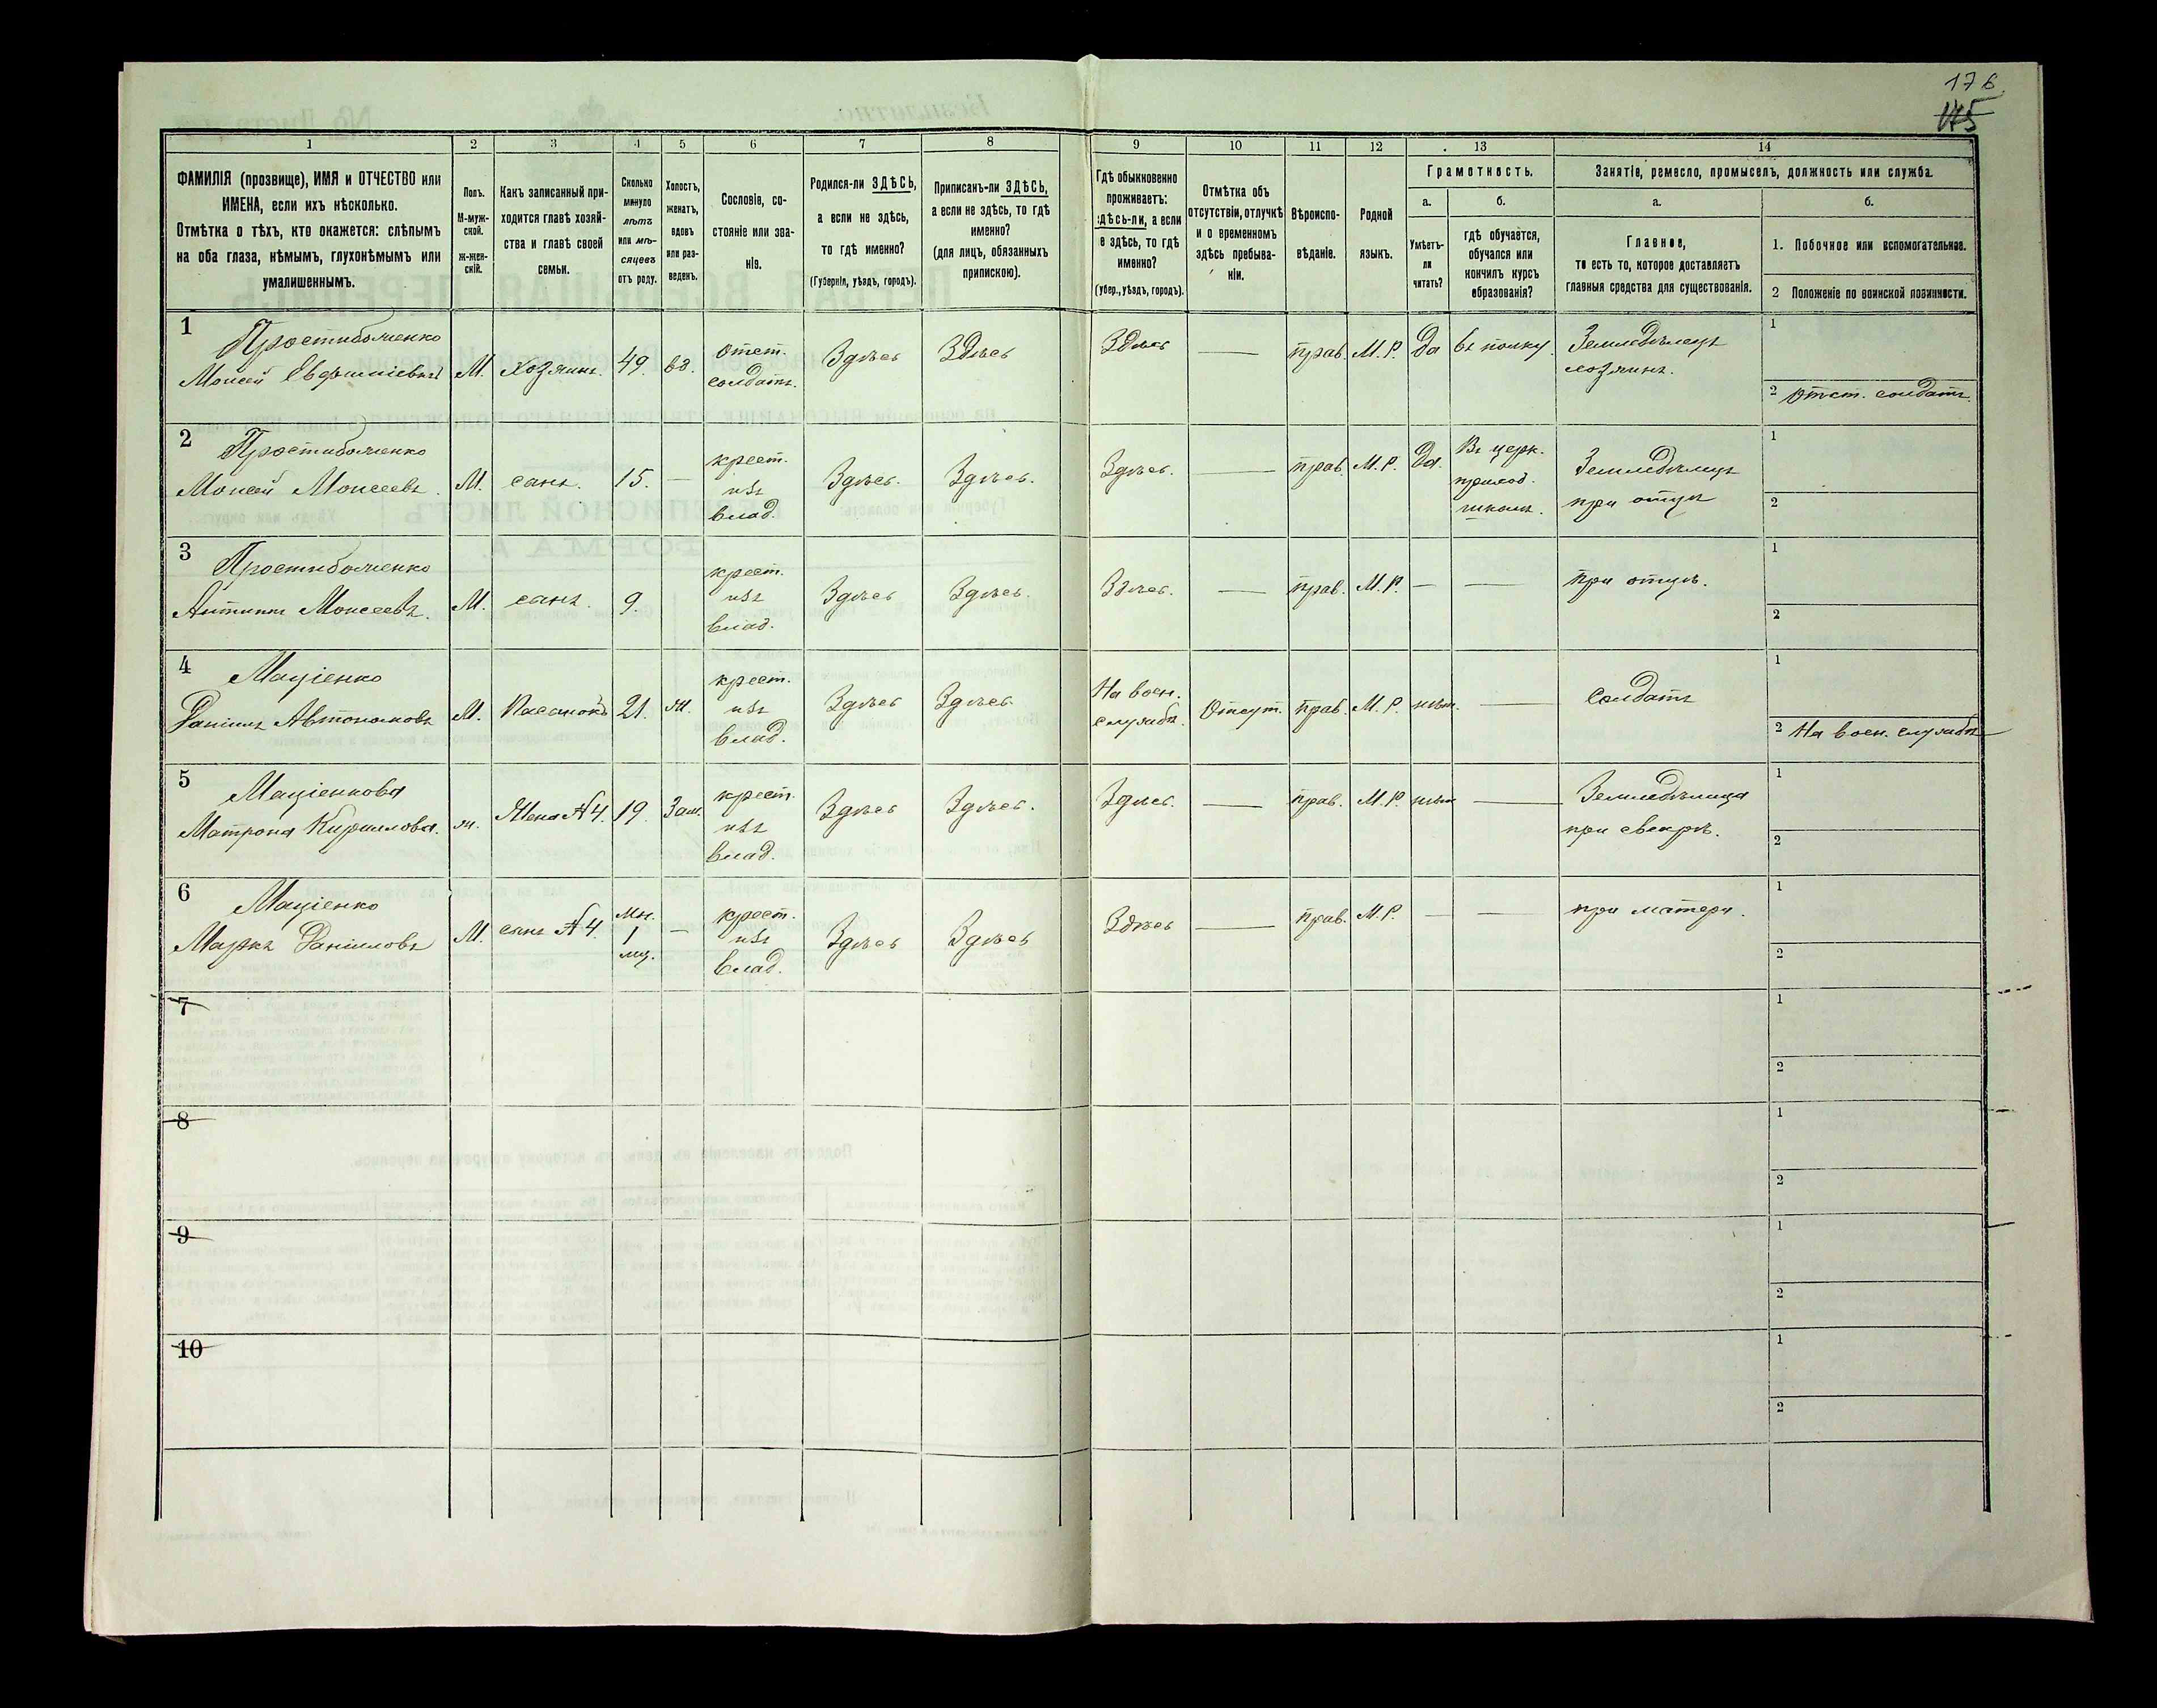 176.
175
1 2 3 4 5 6 7 8 9 10 11 12 13 14
ФАМИЛІЯ (прозвище), ИМЯ и ОТЧЕСТВО или
ИМЕНА, если ихъ нѣсколько.
Отмѣтка о тѣхъ, кто окажется: слѣпымъ
на оба глаза, нѣмымъ, глухонѣмымъ или
умалишеннымъ.
Полъ.
М-муж-
ской.
ж-жен-
скій.
Какъ записанный при-
ходится главѣ хозяй-
ства и главѣ своей
семьи.
Сколько
минуло
лѣтъ
или мѣ-
сяцевъ
отъ роду.
Холостъ,
женатъ,
вдовъ
или раз-
веденъ.
Сословіе, со-
стояніе или зва-
ніе.
Родился-ли ЗДѢСЬ,
а если не здѣсь,
то гдѣ именно?
(Губернія, уѣздъ, городъ).
Приписанъ-ли ЗДѢСЬ,
а если не здѣсь, то гдѣ
именно?
(для лицъ, обязанныхъ
припискою).
Гдѣ обыкновенно
проживаетъ:
здѣсь-ли, а если
не здѣсь, то гдѣ
именно?
(губер., уѣздъ, городъ).
Отмѣтка объ
отсутствіи, отлучкѣ
и о временномъ
здѣсь пребыва-
ніи.
Вѣроиспо-
вѣданіе.
Родной
языкъ.
Грамотность.
а.
Умѣетъ-
ли
читать?
б.
гдѣ обучается,
обучался или
кончилъ курсъ
образованія?
Занятіе, ремесло, промыселъ, должность или служба.
а.
Главное,
то есть то, которое доставляетъ
главныя средства для существованія.
б.
1. Побочное или вспомогательное.
2 Положеніе по воинской повинности.
1
Моисей
М. Хозяинъ. 49. вд.
отст.
солдатъ.
Здѣсь Здѣсь Здѣсь — прав. М. Р. да въ полку.
Земледѣлецъ
хозяинъ.
1
2 Отст. солдатъ.
2
Моисей Моисеевъ.
М. сынъ. 15. —
крест.
изъ
влад.
Здѣсь. Здѣсь. Здѣсь. — прав. М. Р. Да.
Въ церк.
приход.
школѣ.
Земледѣлецъ
при отцѣ
1
2
3
Антипъ Моисеевъ.
М. сынъ. 9.
крест.
изъ
влад.
Здѣсь Здѣсь. Здѣсь. — прав. М. Р. — — при отцѣ.
1
2
4 Маціенко
Даніилъ Автономовъ
М. Пасынокъ 21. ж.
крест.
изъ
влад.
Здѣсь Здѣсь.
На воен.
службѣ.
Отсут. прав. М. Р. нѣт. — Солдатъ
1
2 На воен. службѣ
5
Маціенкова
Матрона Кириллова.
ж. Жена №4. 19. Зам.
крест.
изъ
влад.
Здѣсь Здѣсь. Здѣсь. — прав. М. Р. нѣт —
Земледѣлица
при свекрѣ.
1
2
6
Маціенко
Маркъ Даніиловъ
М. сынъ №4.
Мн.
1
мц.
—
крест.
изъ
влад.
Здѣсь Здѣсь Здѣсь — прав. М. Р. — — при матери.
1
2
7
1
2
8
1
2
9
1
2
10
1
2